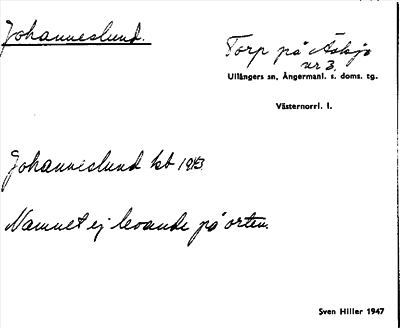 Johanneslund.
Torp på Åsksjö
nr 3.
Ullångers sn, Ångermanl. s. doms. tg.
Västernorrl. l.
Johanneslund kb 1913
Namnet ej levande på orten.
Sven Hiller 1947